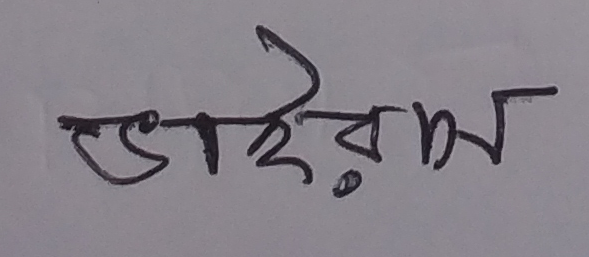 ভাইরাস